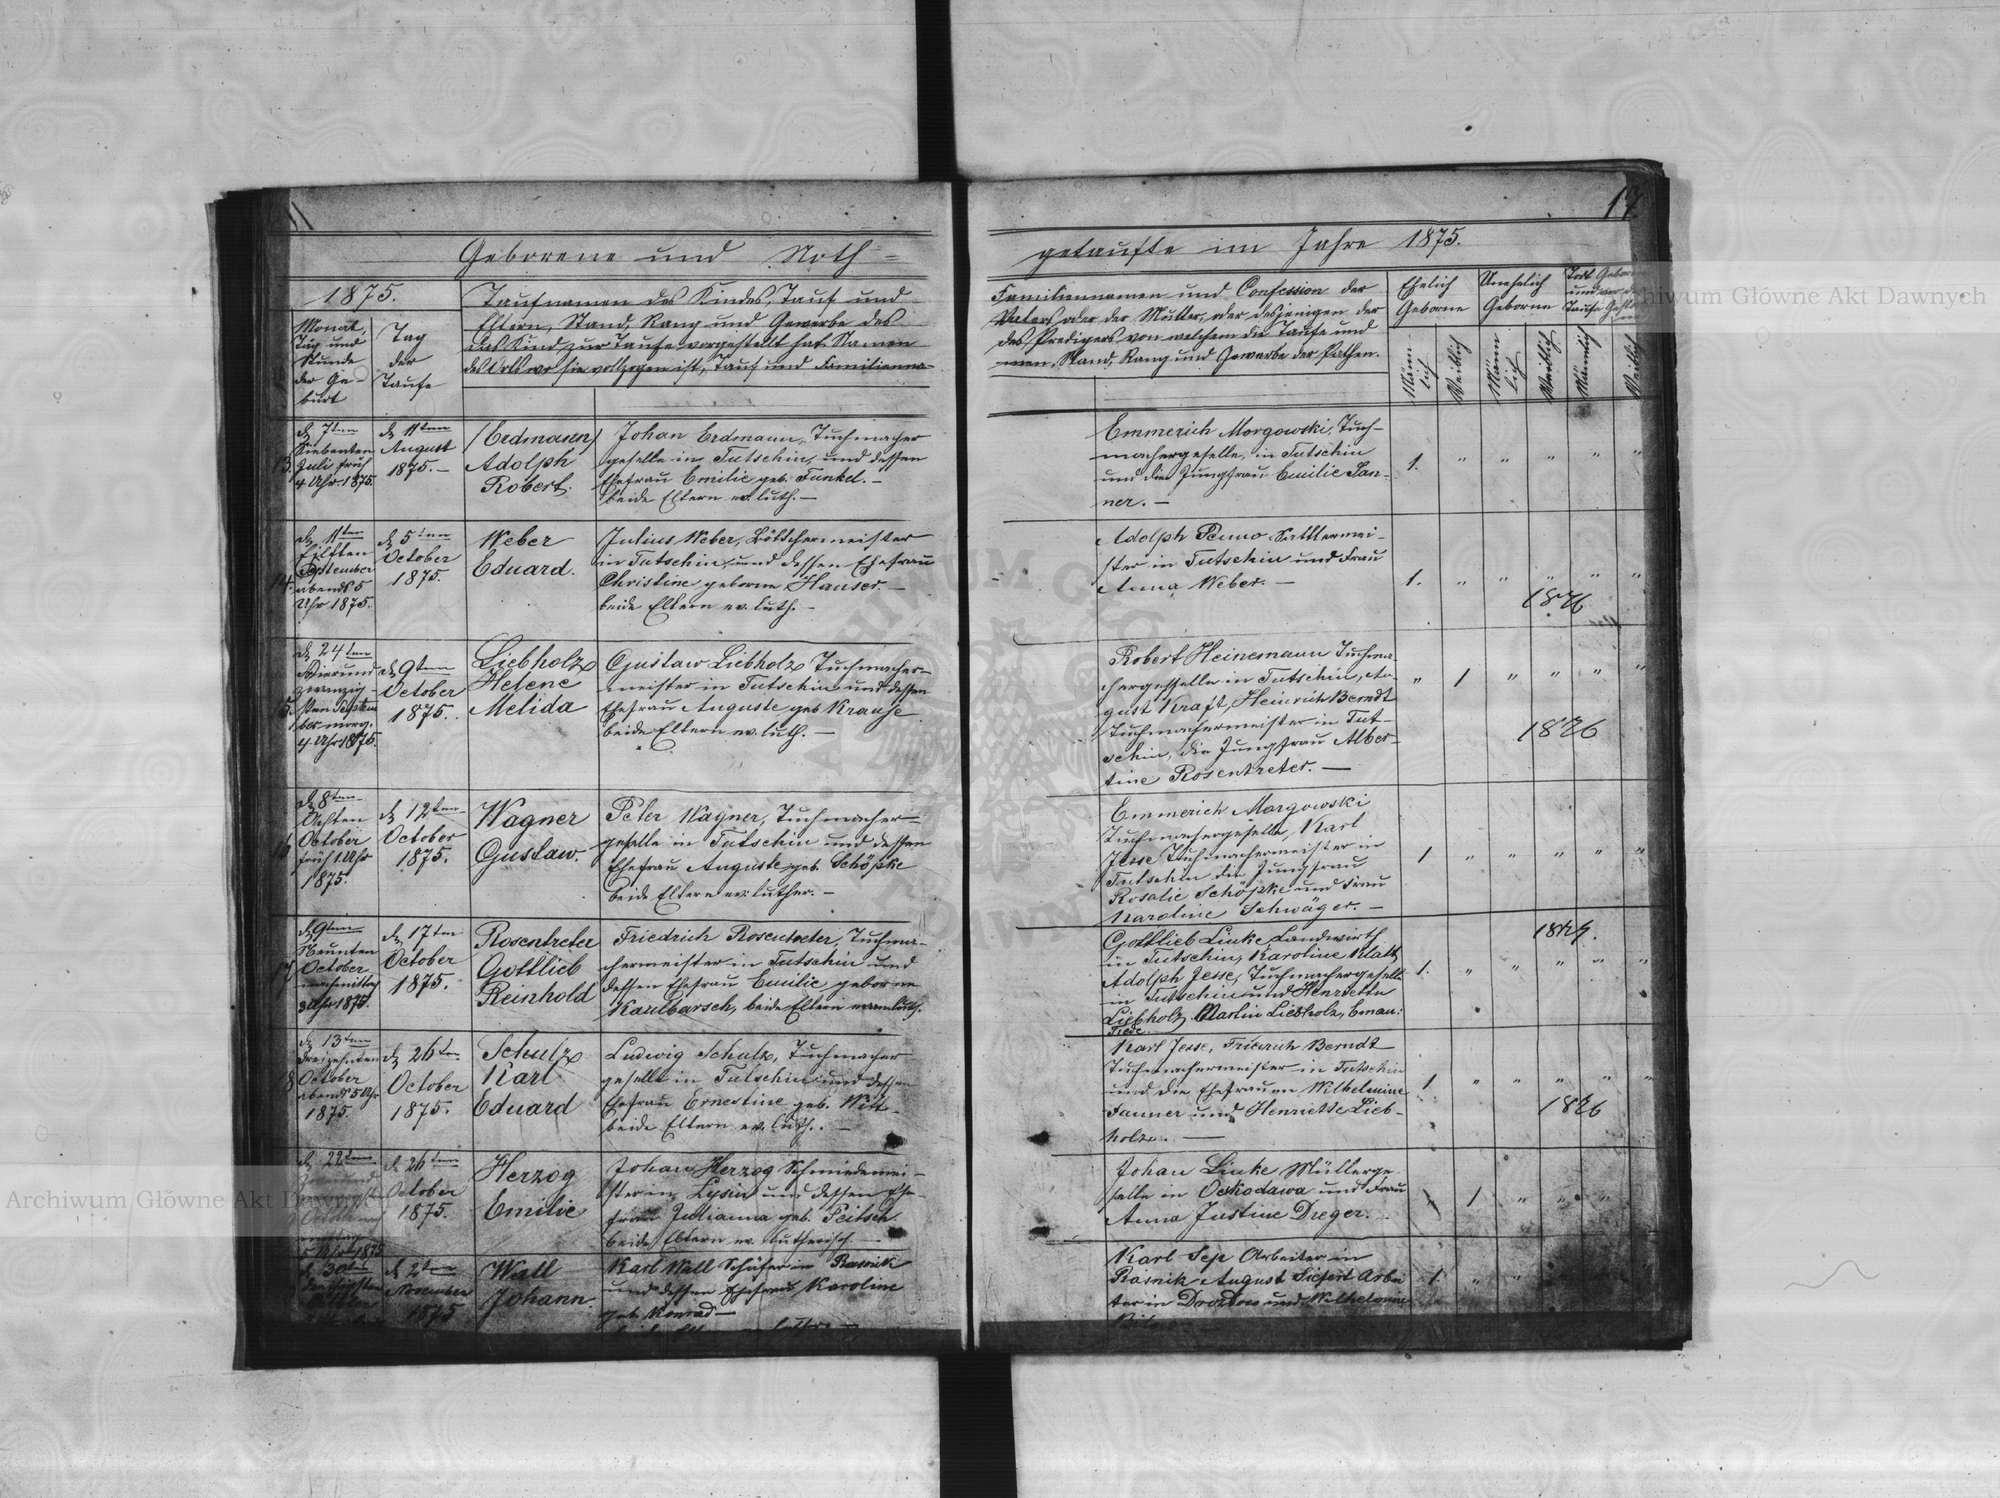 17.
Geborene und Noth=
getaufte im Jahre 1875.
1875.
Monat,
Tag und
Stunde
der Ge-
burt
Tag
der
Taufe
Taufnamen des Kindes, Tauf und
Eltern, Stand, Rang und Gewerbe des
das Kind zur Taufe vorgestellt hat Namen
des Orts wo sie vollzogen ist, Tauf und Familienna-
Familiennamen und Confession der
Vaters oder der Mutter, oder desjenigen der
des Predigers von welchem die Taufe und
men, Stand, Rang und Gewerbe der Pathen.
Ehelich
Geborne
Unehelich
Geborne
Todt Gebor
und vor d
Taufe Gest
Männ
lich
Weiblich
Männ
lich
Weiblich
Männlich
Weiblich
13.
d 7ten
Siebenten
Juli früh
4 Uhr 1875.
d 11ten
August
1875.-
(Erdmann)
Adolph
Robert.
Johan Erdmann, Tuchmacher
geselle in Tutschin, und dessen
Ehefrau Emilie geb. Funkel.-
beide Eltern ev. luth.-
Emmerich Morgowski, Tuch-
machergeselle, in Tutschin
und die Jungfrau Emilie Jan-
ner.-
1. " " " " "
14.
d 11ten
Eilften
September
abends 5
Uhr 1875.
d 5ten
October
1875.
Weber
Eduard.
Julius Weber, Böttchermeister
in Tutschin, und dessen Ehefrau
Christine geborne Hauser.-
beide Eltern ev. luth.-
Adolph Penno Sattlermei-
ster in Tutschin und Frau
Anna Weber.-
1. " " " " "
1876
15.
d 24ten
Vierund
zwanzig
sten Septem
ber morg.
4 Uhr 1875.
d 9ten
October
1875.
Liebholz
Helene
Melida
Gustaw Liebholz Tuchmacher-
meister in Tutschin und dessen
Ehefrau Auguste geb Krause
beide Eltern ev. luth.-
Robert Heinemann Tuchma-
chergeselle in Tutschin, Au-
gust Kraft, Heinrich Berndt
Tuchmachermeister in Tut-
schin, die Jungfrau Alber-
tine Rosentreter.-
" 1 " " " "
1876
16
d 8ten
Achten
October
früh 1 Uhr
1875.
d 12ten
October
1875.
Wagner
Gustaw.
Peter Wagner, Tuchmacher-
geselle in Tutschin und dessen
Ehefrau Auguste geb. Schöpke
beide Eltern ev. luther.-
Emmerich Morgowski
Tuchmachergeselle, Karl
Jesse Tuchmachermeister in
Tutschin die Jungfrau
Rosalie Schöpke und Frau
Karoline Schwäger.-
1 " " " " "
17
d 9ten
Neunten
October
nachmittag
3 Uhr 1875.
d 17ten
October
1875.
Rosentreter
Gottlieb
Reinhold
Friedrich Rosentreter, Tuchma-
chermeister in Tutschin und
dessen Ehefrau Emilie geborne
Kaulbarsch, beide Eltern
Gottlieb Linke Landwirth
in Tutschin, Karoline Klatt
Adolph Jesse, Tuchmachergeselle
in Tutschin und Henriette
Liebholz Martin Liebholz, Eman:
Tiede.
1. " " " " "
18
d 13ten
Dreizehnten
October
abends 5 Uhr
1875.
d 26ten
October
1875.
Schulz
Karl
Eduard
Ludwig Schulz, Tuchmacher
geselle in Tutschin und dessen
Ehefrau Ernestine geb. Witt-
beide Eltern ev. luth.-
Karl Jesse, Friedrich Berndt
Tuchmachermeister in Tutschin
und die Ehefrauen Wilhelmine
Janner und Henriette Lieb-
holz.-
1 " " " " "
1876
d 22ten
5 Uhr 1875
d 26ten
October
1875.
Herzog
Emilie
Johan Herzog Schmiedemei-
ster in Lysin und dessen Ehe-
frau Julianna geb. Peitsch.
beide Eltern ev. lutherisch.-
Johan Linke Müllerge-
selle in Ockodawa und Frau
Anna Justine Dreger.-
" 1 " " " "
d 30ten
dreißigsten
d 2ten
November
1875
Wall
Johann.
Karl Wall Schäfer in Rasnik
und dessen Ehefrau Karoline
geb. Konrad-
Karl Sep Arbeiter in
Rasnik August Siefert Arbei
ter in Drozdow und Wilhelmine
1 " "
Archiwum Główne Akt Dawnych
Archiwum Główne Akt Dawnych